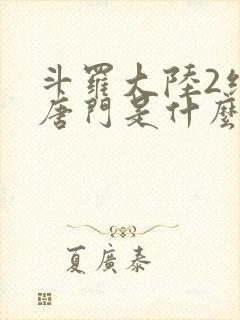 斗羅大陸2
唐門是什麼
夏廣泰